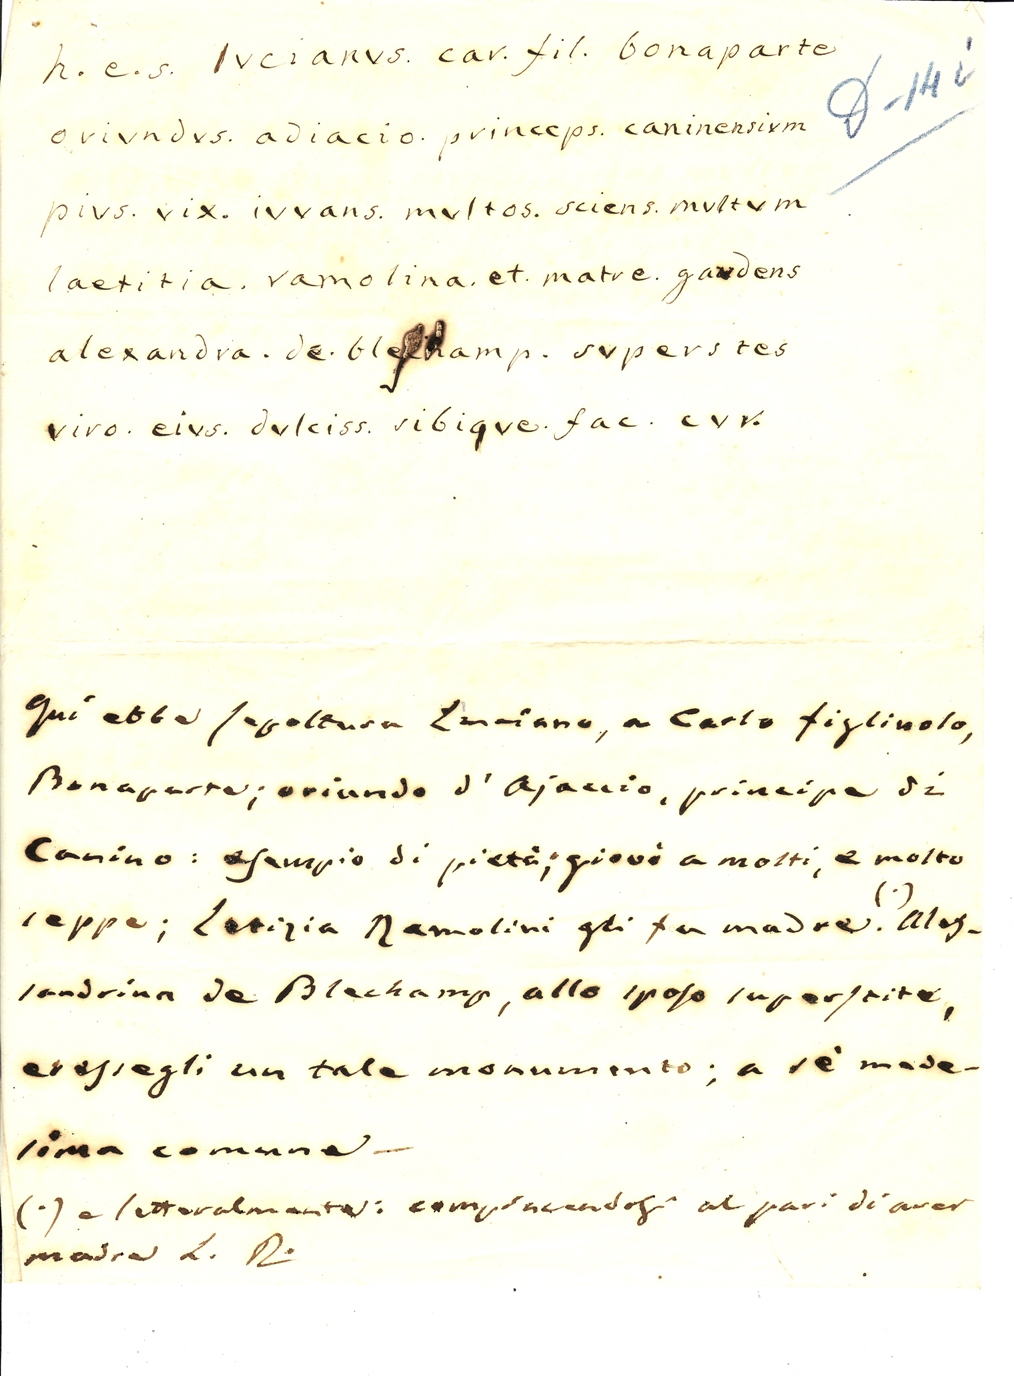 h. e. s. lvcianvs. car. fil. bonaparte
D-14 i
orivndvs. adiacio. princeps. caninensivm
pivs. vix. ivvans. mvltos. sciens. mvltvm
laetitia. ramolina. et. matre. gaudens
alexandra. de. blechamp. svperstes
viro. eivs. dvlciss. sibiqve. fac. cvr.
Qui ebbe sepoltura Luciano, a Carlo figliuolo,
Bonaparte; oriundo d' Ajaccio, principe di
Canino: esempio di pietà; giovò a molti, e molto
seppe; Letizia Ramolini gli fu madre (·). Ales-
sandrina de Blechamp, allo sposo superstite,
eressegli un tale monumento; a sè mede-
sima comune —
(·) e letteralmente: compiacendosi al pari di aver
madre L. R.